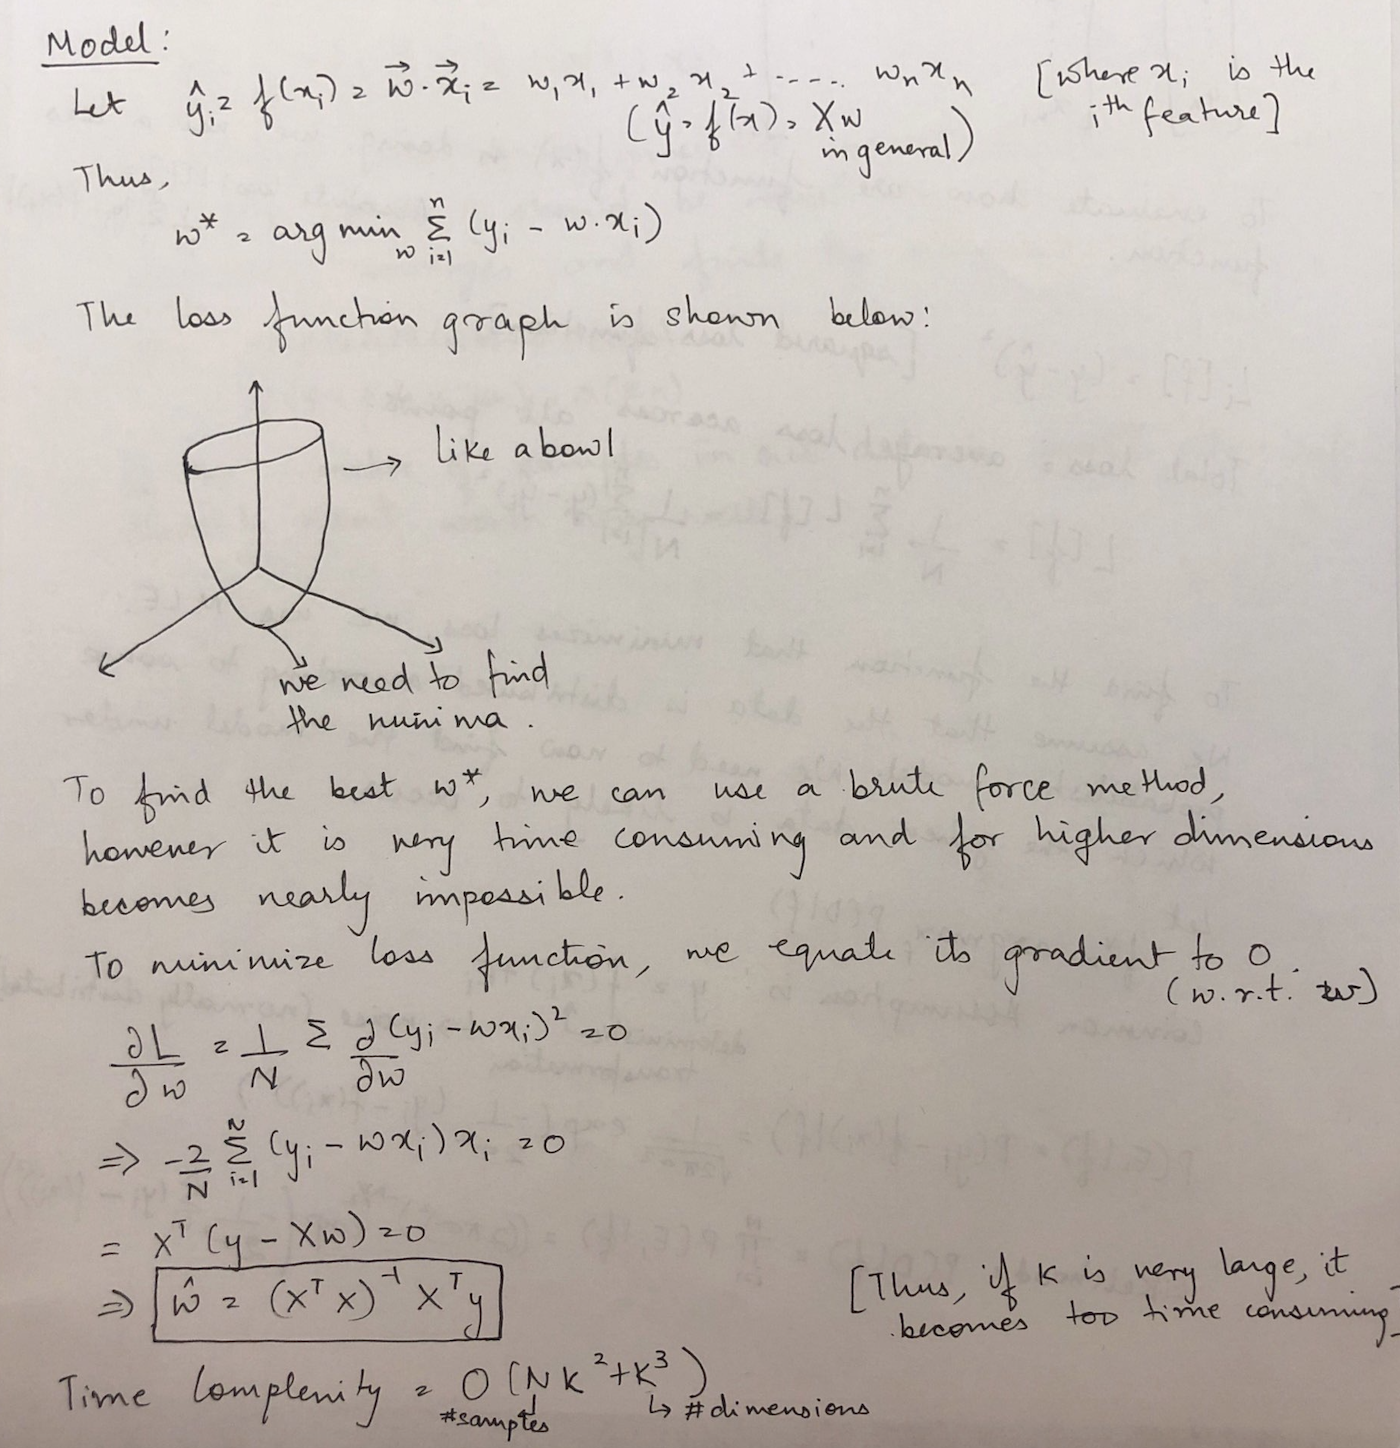 Model:
Let ŷᵢ = f(xᵢ) = w⃗·x⃗ᵢ = w₁x₁ + w₂x₂ + ----. wₙxₙ [where xᵢ is the
(ŷ = f(x) = Xw ith feature]
in general)
Thus,
w* = arg min_w Σᵢ₌₁ⁿ (yᵢ - w·xᵢ)
The loss function graph is shown below:
→ like a bowl
we need to find
the minima.
To find the best w*, we can use a brute force method,
however it is very time consuming and for higher dimensions
becomes nearly impossible.
To minimize loss function, we equate its gradient to 0.
(w.r.t. w)
∂L/∂w = 1/N Σ ∂/∂w (yᵢ - wxᵢ)² = 0
⇒ -2/N Σᵢ₌₁ᴺ (yᵢ - wxᵢ) xᵢ = 0
= Xᵀ (y - Xw) = 0
⇒ ŵ = (XᵀX)⁻¹ Xᵀy
[Thus, if K is very large, it
becomes too time consuming]
Time Complexity = O(NK² + K³)
#samples ↳ #dimensions